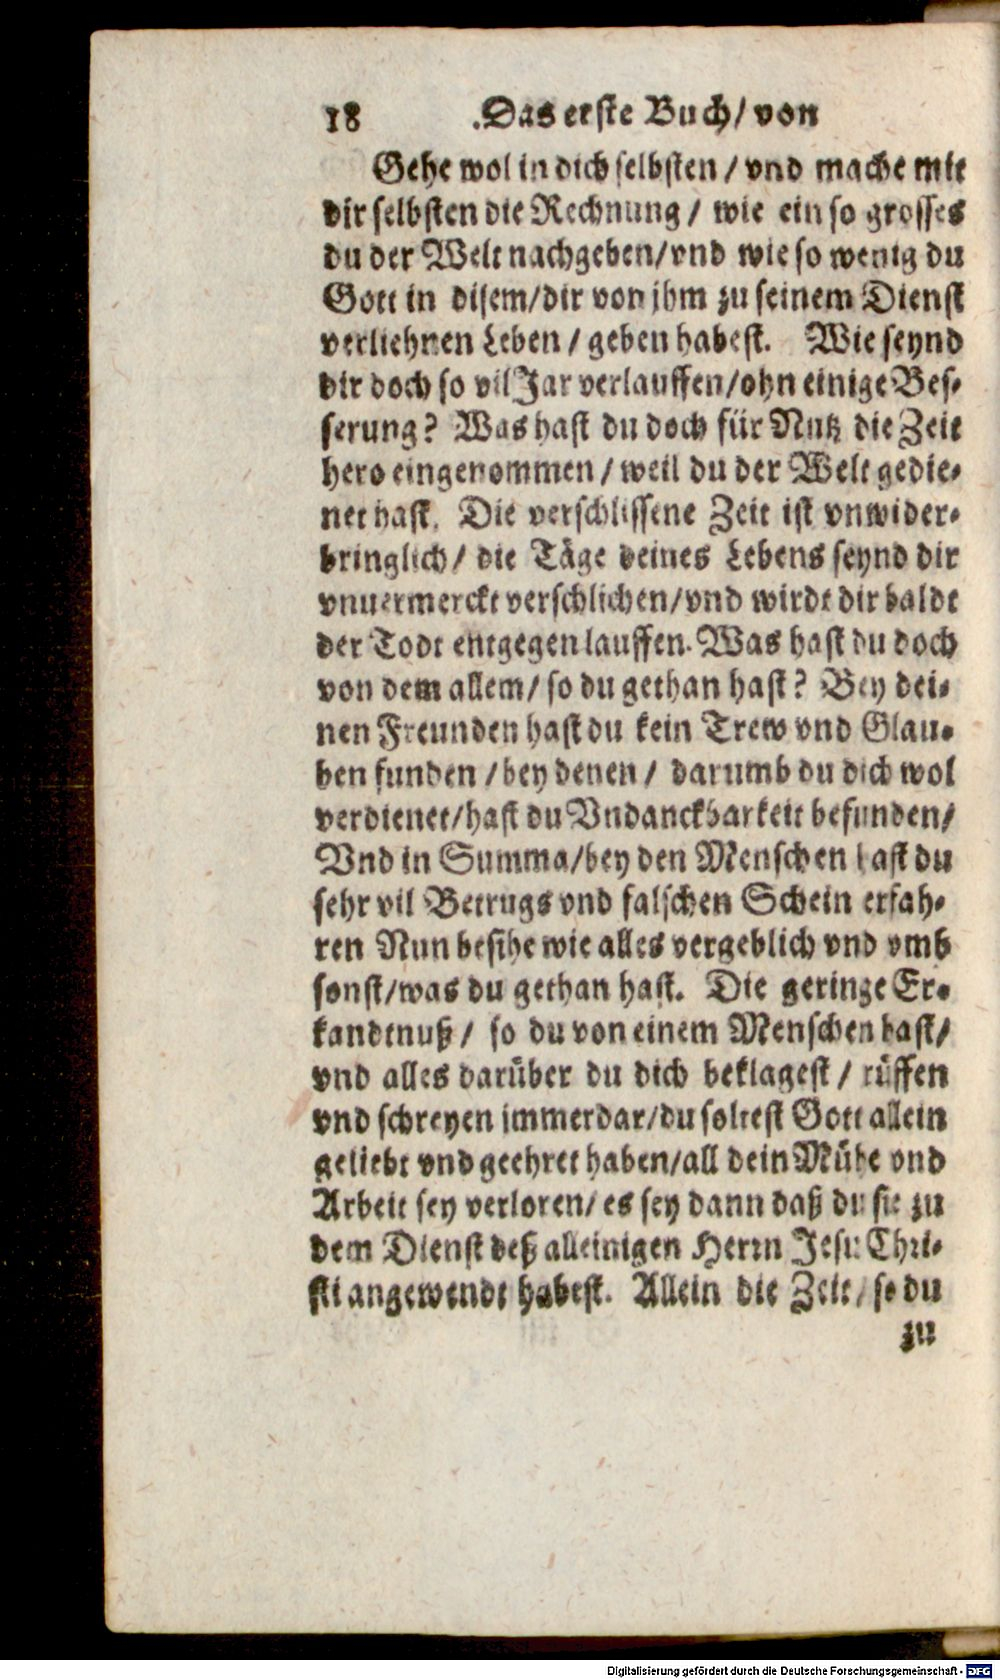 18 Das erste Buch/ von
Gehe wol in dich selbsten / vnd mache mit
dir selbsten die Rechnung / wie ein so grosses
du der Welt nachgeben/vnd wie so wenig du
Gott in disem/dir von jhm zu seinem Dienst
verliehnen Leben / geben habest. Wie seynd
dir doch so vil Jar verlauffen/ohn einige Bes-
serung? Was hast du doch für Nutz die Zeit
hero eingenommen / weil du der Welt gedie-
net hast. Die verschlissene Zeit ist vnwider-
bringlich/ die Täge deines Lebens seynd dir
vnuermerckt verschlichen/vnd wirdt dir baldt
der Todt entgegen lauffen. Was hast du doch
von dem allem/ so du gethan hast? Bey dei-
nen Freunden hast du kein Trew vnd Glau-
ben funden /bey denen / darumb du dich wol
verdienet/hast du Vndanckbarkeit befunden/
Vnd in Summa/bey den Menschen hast du
sehr vil Betrugs vnd falschen Schein erfah-
ren Nun besihe wie alles vergeblich vnd vmb
sonst/was du gethan hast. Die geringe Er-
kandtnuß / so du von einem Menschen hast/
vnd alles darüber du dich beklagest / rüffen
vnd schreyen jmmerdar/du soltest Gott allein
geliebt vnd geehret haben/all dein Mühe vnd
Arbeit sey verloren/ es sey dann daß du sie zu
dem Dienst deß alleinigen Herrn Jesu Chri-
sti angewendt habest. Allein die Zeit / so du
zu
Digitalisierung gefördert durch die Deutsche Forschungsgemeinschaft - DFG